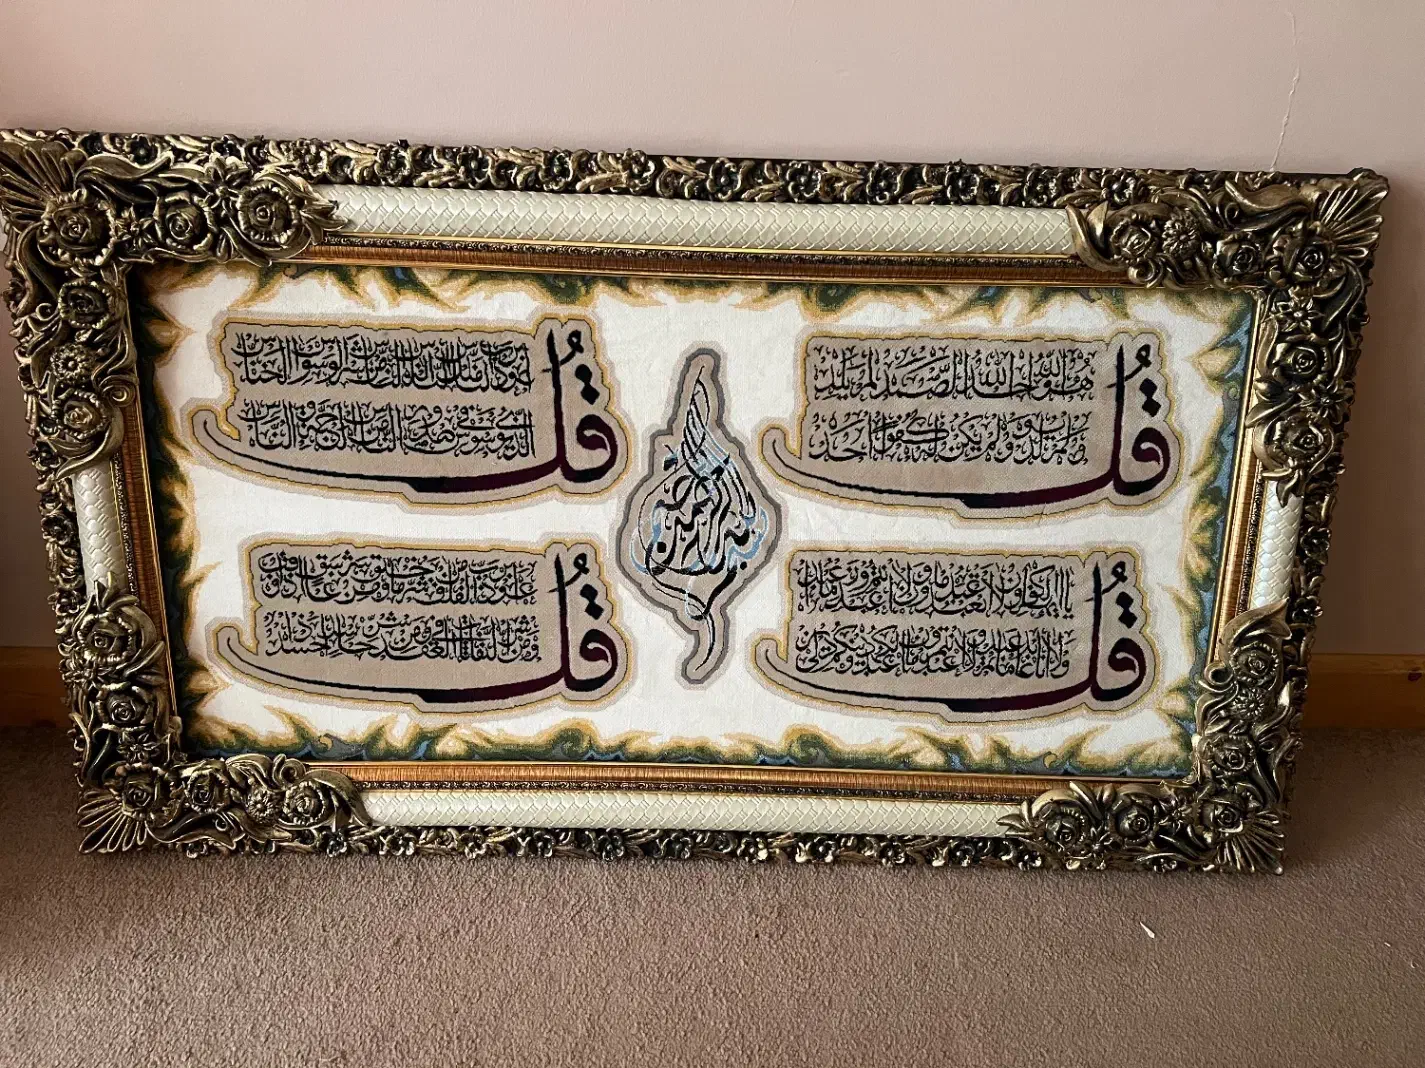 قل
هو الله احد الله الصمد لم يلد
ولم يولد ولم يكن له كفوا احد
قل
اعوذ برب الناس ملك الناس اله الناس من شر الوسواس الخناس
الذي يوسوس في صدور الناس من الجنة و الناس
بسم الله الرحمن الرحيم
قل
يا ايها الكافرون لا اعبد ما تعبدون ولا انتم عابدون ما اعبد
ولا انا عابد ما عبدتم ولا انتم عابدون ما اعبد لكم دينكم ولي دين
قل
اعوذ برب الفلق من شر ما خلق ومن شر غاسق اذا وقب
ومن شر النفاثات في العقد ومن شر حاسد اذا حسد